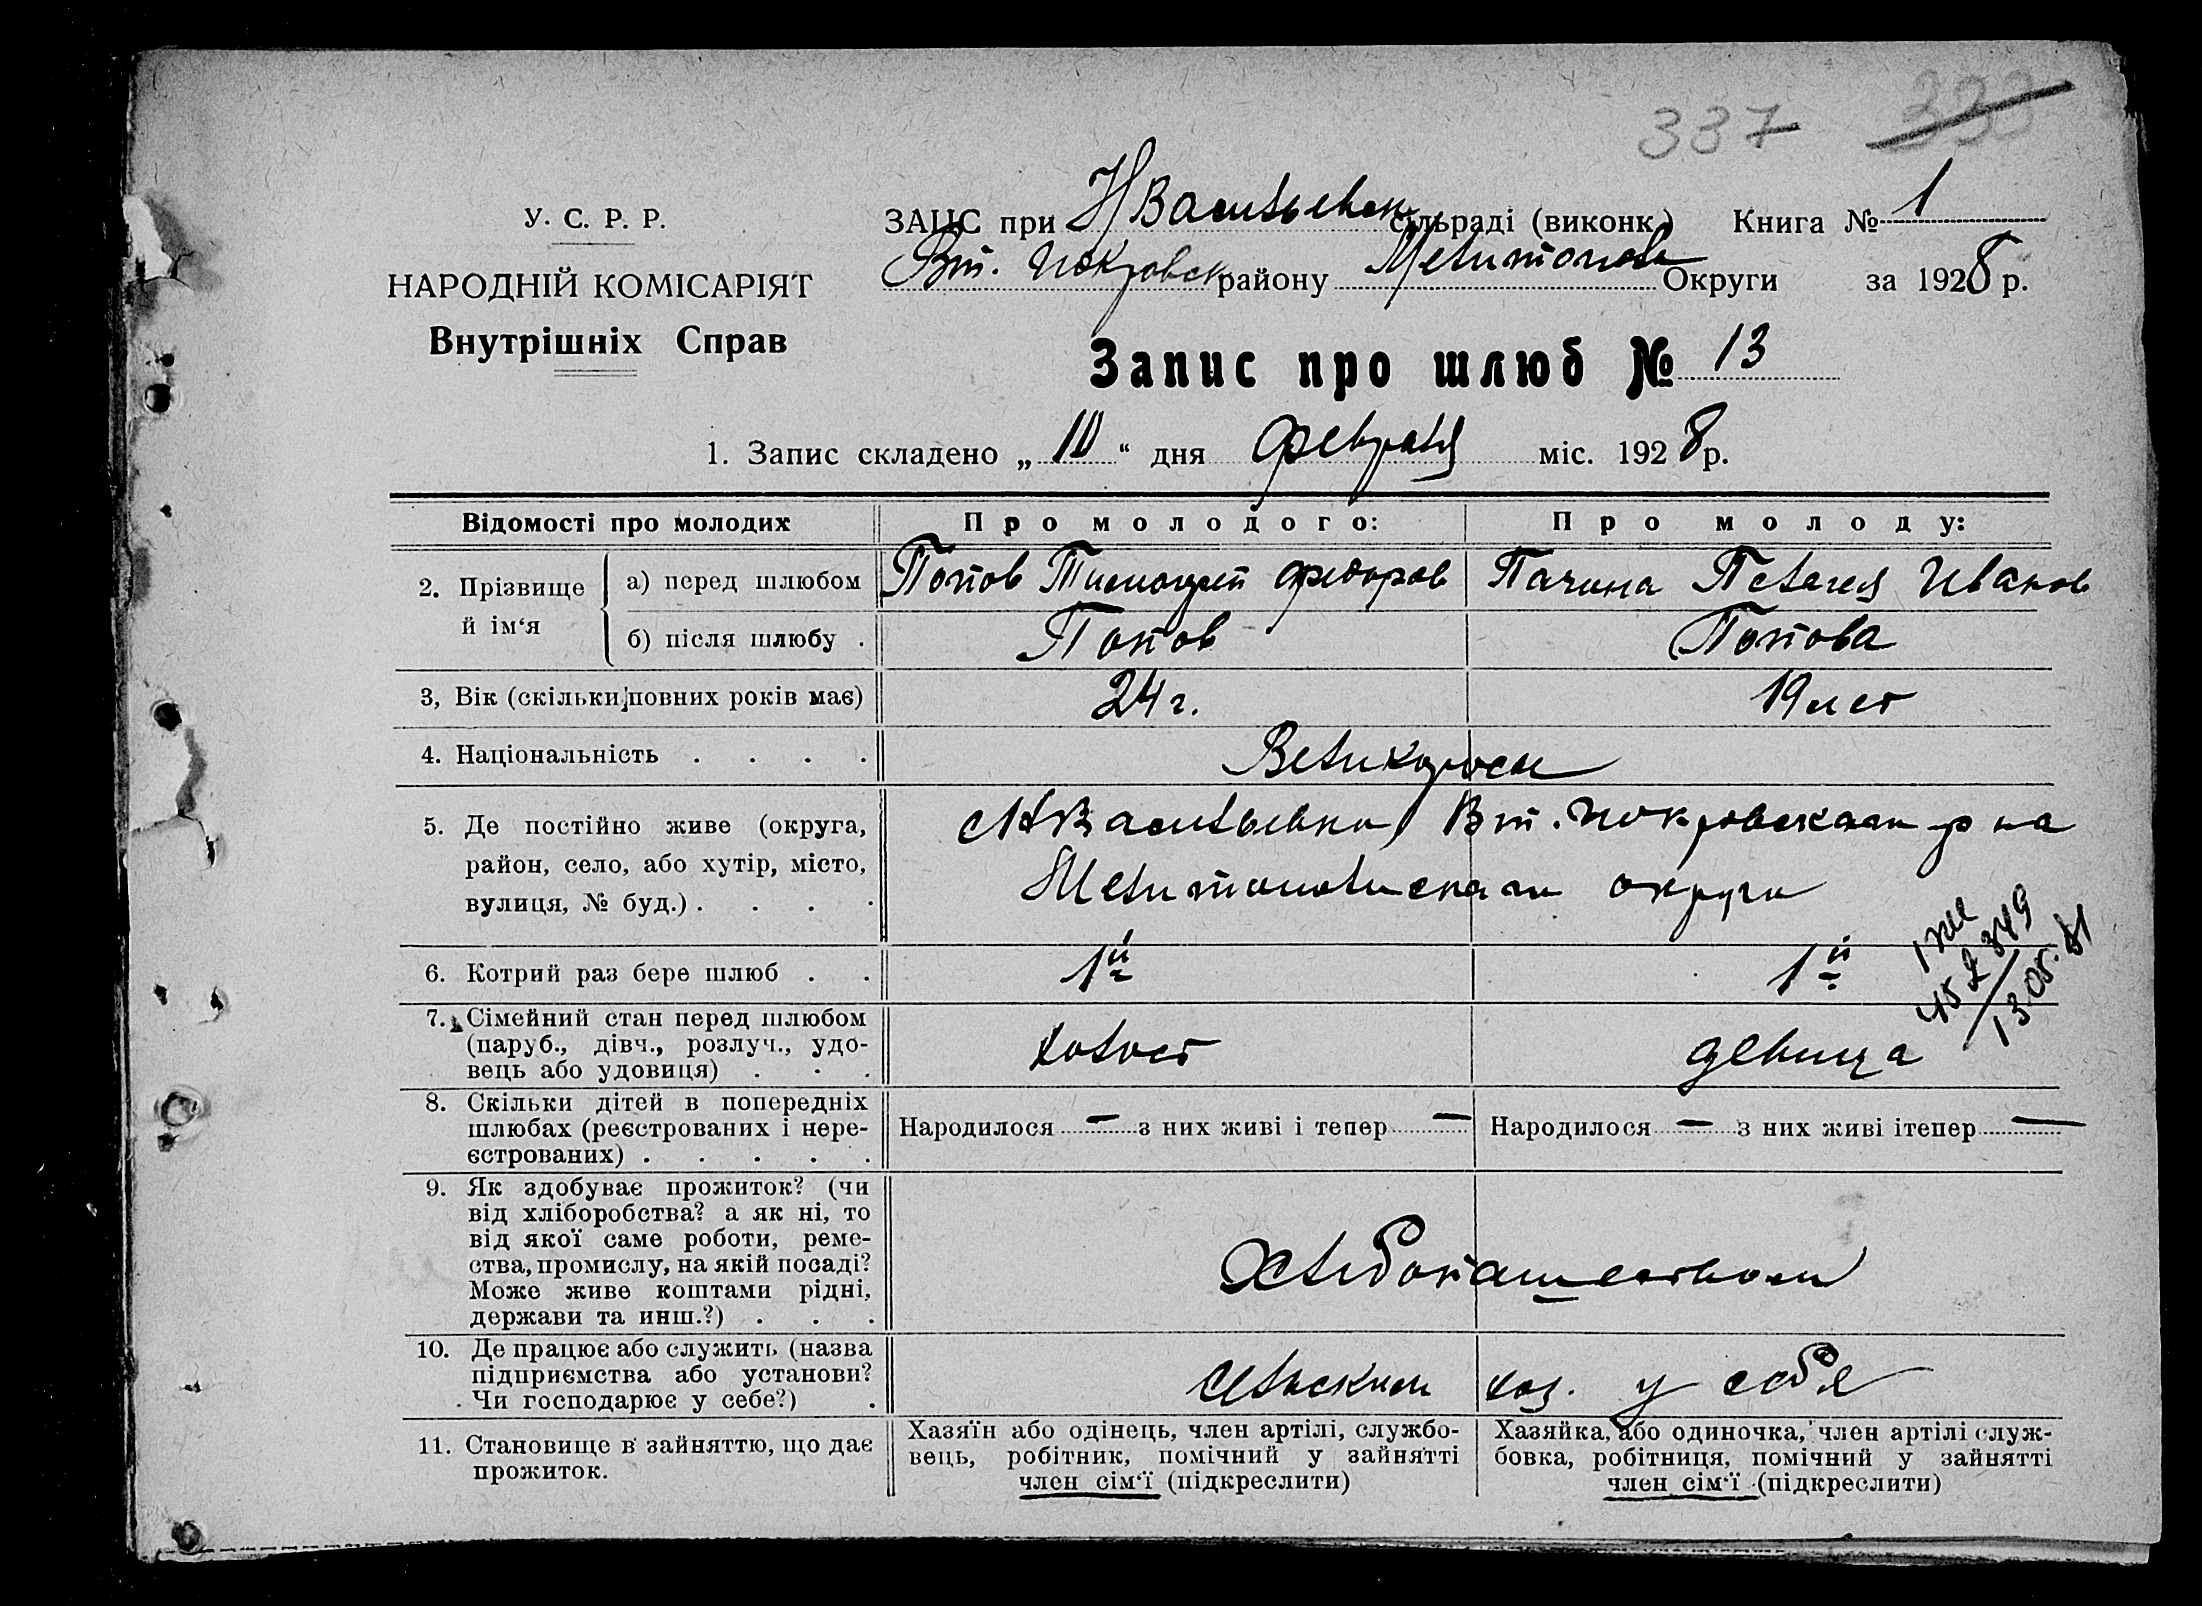 337 333
У. С. Р. Р.
НАРОДНІЙ КОМІСАРІЯТ
Внутрішніх Справ
ЗАЦС при НВасильевск. сільраді (виконк.) Книга № 1
Вт. Покровск району Мелитопольск Округи за 1928 р.
Запис про шлюб № 13
1. Запис складено „ 10 “ дня февраля міс. 1928 р.
Відомості про молодих Про молодого: Про молоду:
2. Прізвище й ім‘я
а) перед шлюбом Попов Тимофей Федоров Пачина Пелагея Иванов
б) після шлюбу . Попов Попова
3, Вік (скільки повних років має) 24 г. 19 лет
4. Національність . . . . Великороссы
5. Де постійно живе (округа,
район, село, або хутір, місто,
вулиця, № буд.) . . . .
НВасильевка Вт. Покровского р на
Мелитопольского округа
6. Котрий раз бере шлюб . . 1й 1й
7. Сімейний стан перед шлюбом
(паруб., дівч., розлуч., удо-
вець або удовиця) . . .
холост девица
8. Скільки дітей в попередніх
шлюбах (реєстрованих і нере-
єстрованих) . . . . .
Народилося — з них живі і тепер — Народилося — з них живі ітепер —
9. Як здобуває прожиток? (чи
від хліборобства? а як ні, то
від якої саме роботи, реме-
ства, промислу, на якій посаді?
Може живе коштами рідні,
держави та инш.?) . . .
Хлебопашеством
10. Де працює або служить (назва
підприємства або установи?
Чи господарює у себе?) .
сельским хоз. у себя
11. Становище в зайняттю, що дає
прожиток.
Хазяїн або одінець, член артілі, службо-
вець, робітник, помічний у зайнятті
член сім‘ї (підкреслити)
Хазяйка, або одиночка, член артілі служ-
бовка, робітниця, помічний у зайнятті
член сім‘ї (підкреслити)